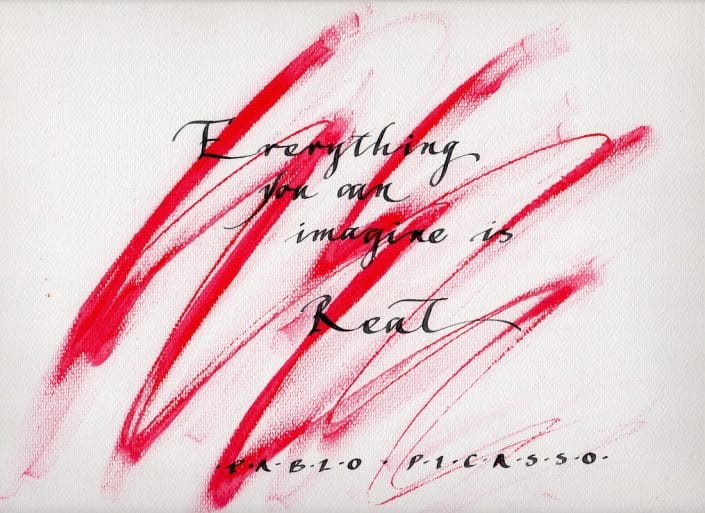 Everything
you can
imagine is
Real
·P·A·B·L·O · P·I·C·A·S·S·O·